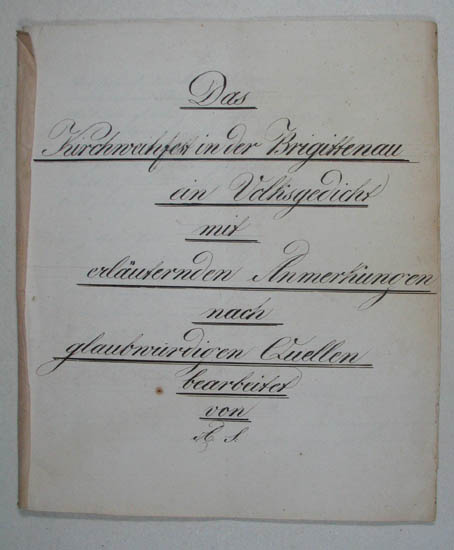 Das
Kirchweihfest in der Brigittenau
ein Volksgedicht
mit
erläuternden Anmerkungen
nach
glaubwürdigen Quellen
bearbeitet
von
A. S.